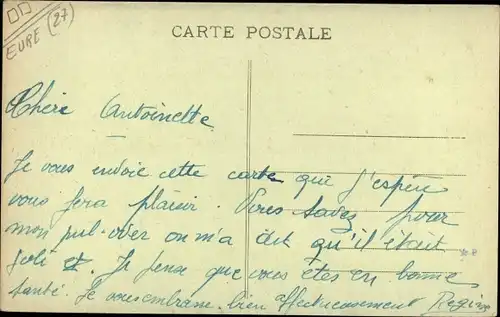 EURE (27)
CARTE POSTALE
Chère Antoinette
Je vous envoie cette carte qui j'espère
vous fera plaisir. Vous savez pour
mon pul-over on m'a dit qu'il était
joli et. Je pense que vous êtes en bonne
santé. Je vous embrasse bien affectueusement Régine